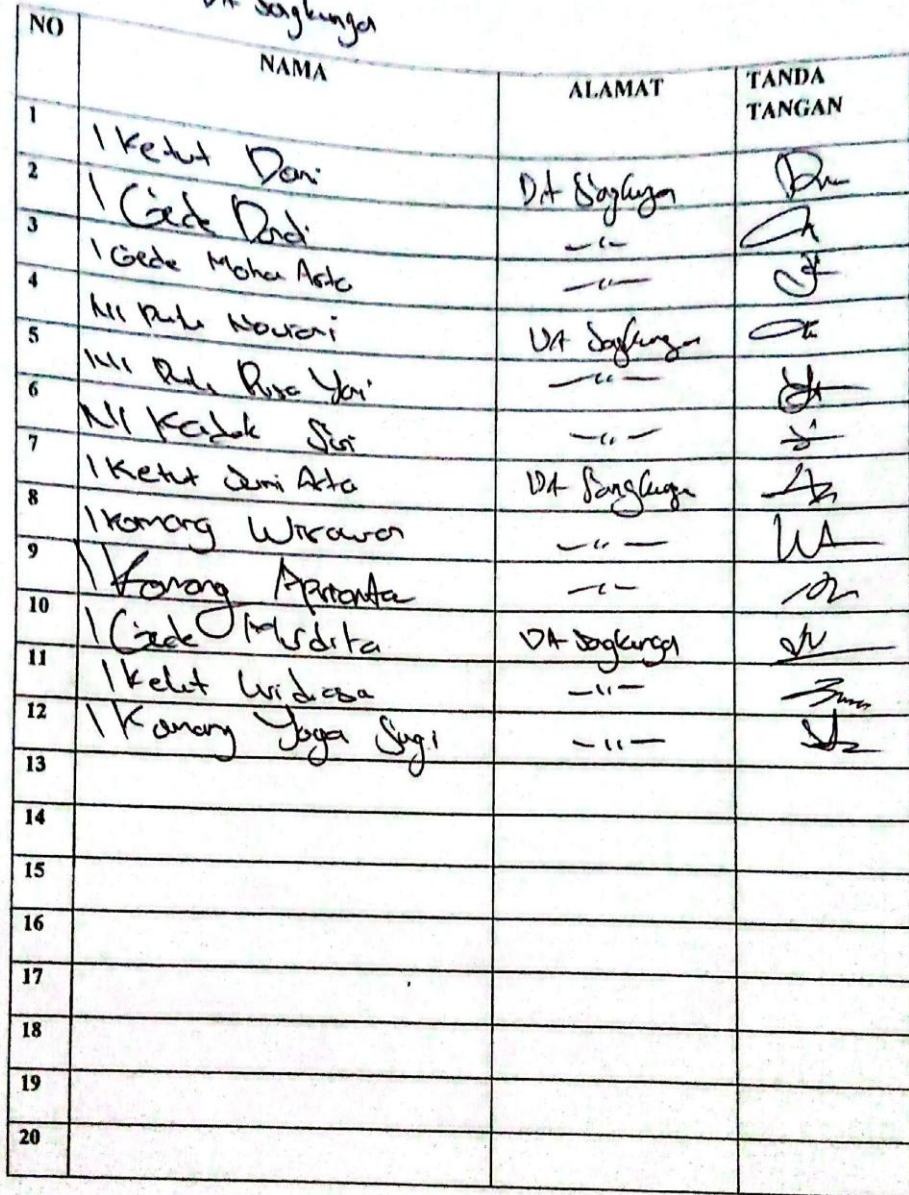 DA Sangkunga
NO NAMA ALAMAT TANDA TANGAN
1 I Ketut Dani DA Sangkunga
2 I Gede Dandi -"-
3 I Gede Moha Asta -"-
4 Ni Putu Novrani DA Sangkunga
5 Ni Putu Yani -"-
6 Ni Kadek Sri -"-
7 I Ketut Juni Arta DA Sangkunga
8 I Komang Wirawan -"-
9 I Komang Aprianta -"-
10 I Gede Murdita DA Sangkunga
11 I Ketut Widiasa -"-
12 I Komang Yoga Sugi -"-
13
14
15
16
17
18
19
20